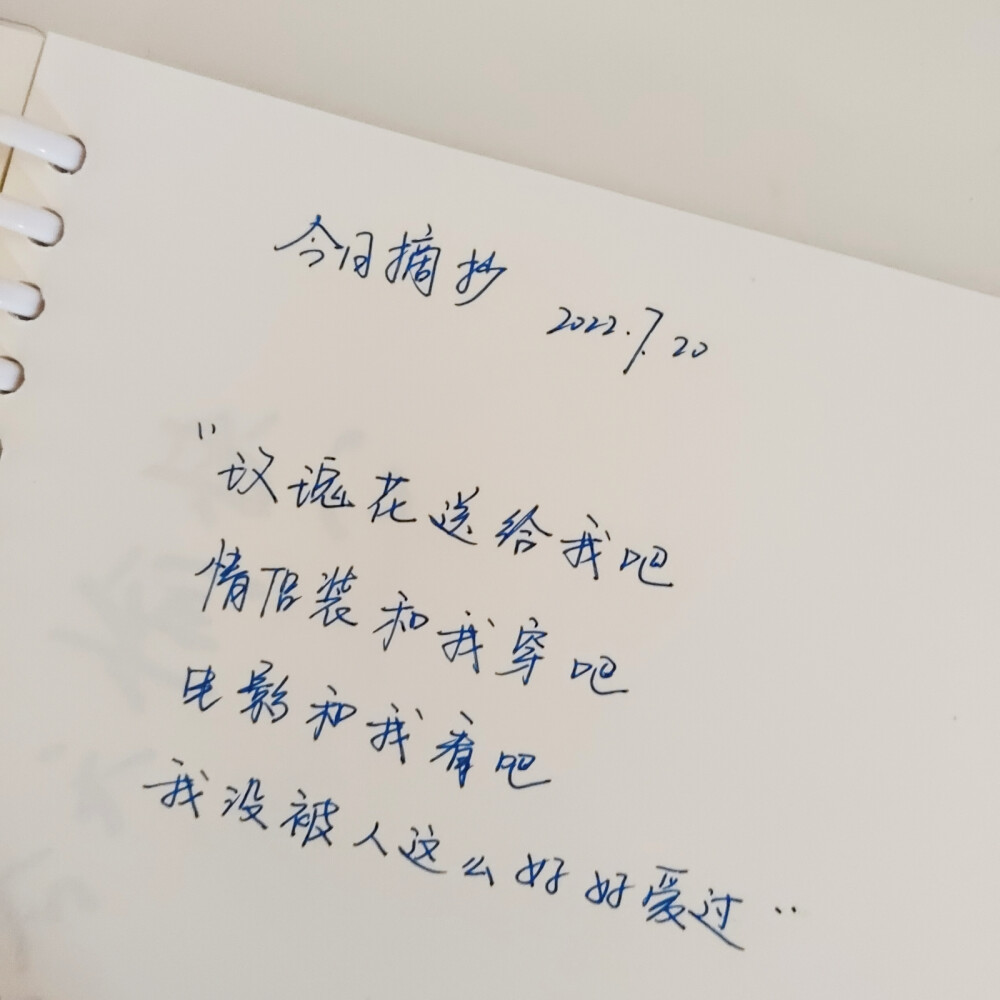 今日摘抄
2022.7.20
"玫瑰花送给我吧
情侣装和我穿吧
电影和我看吧
我没被人这么好好爱过"